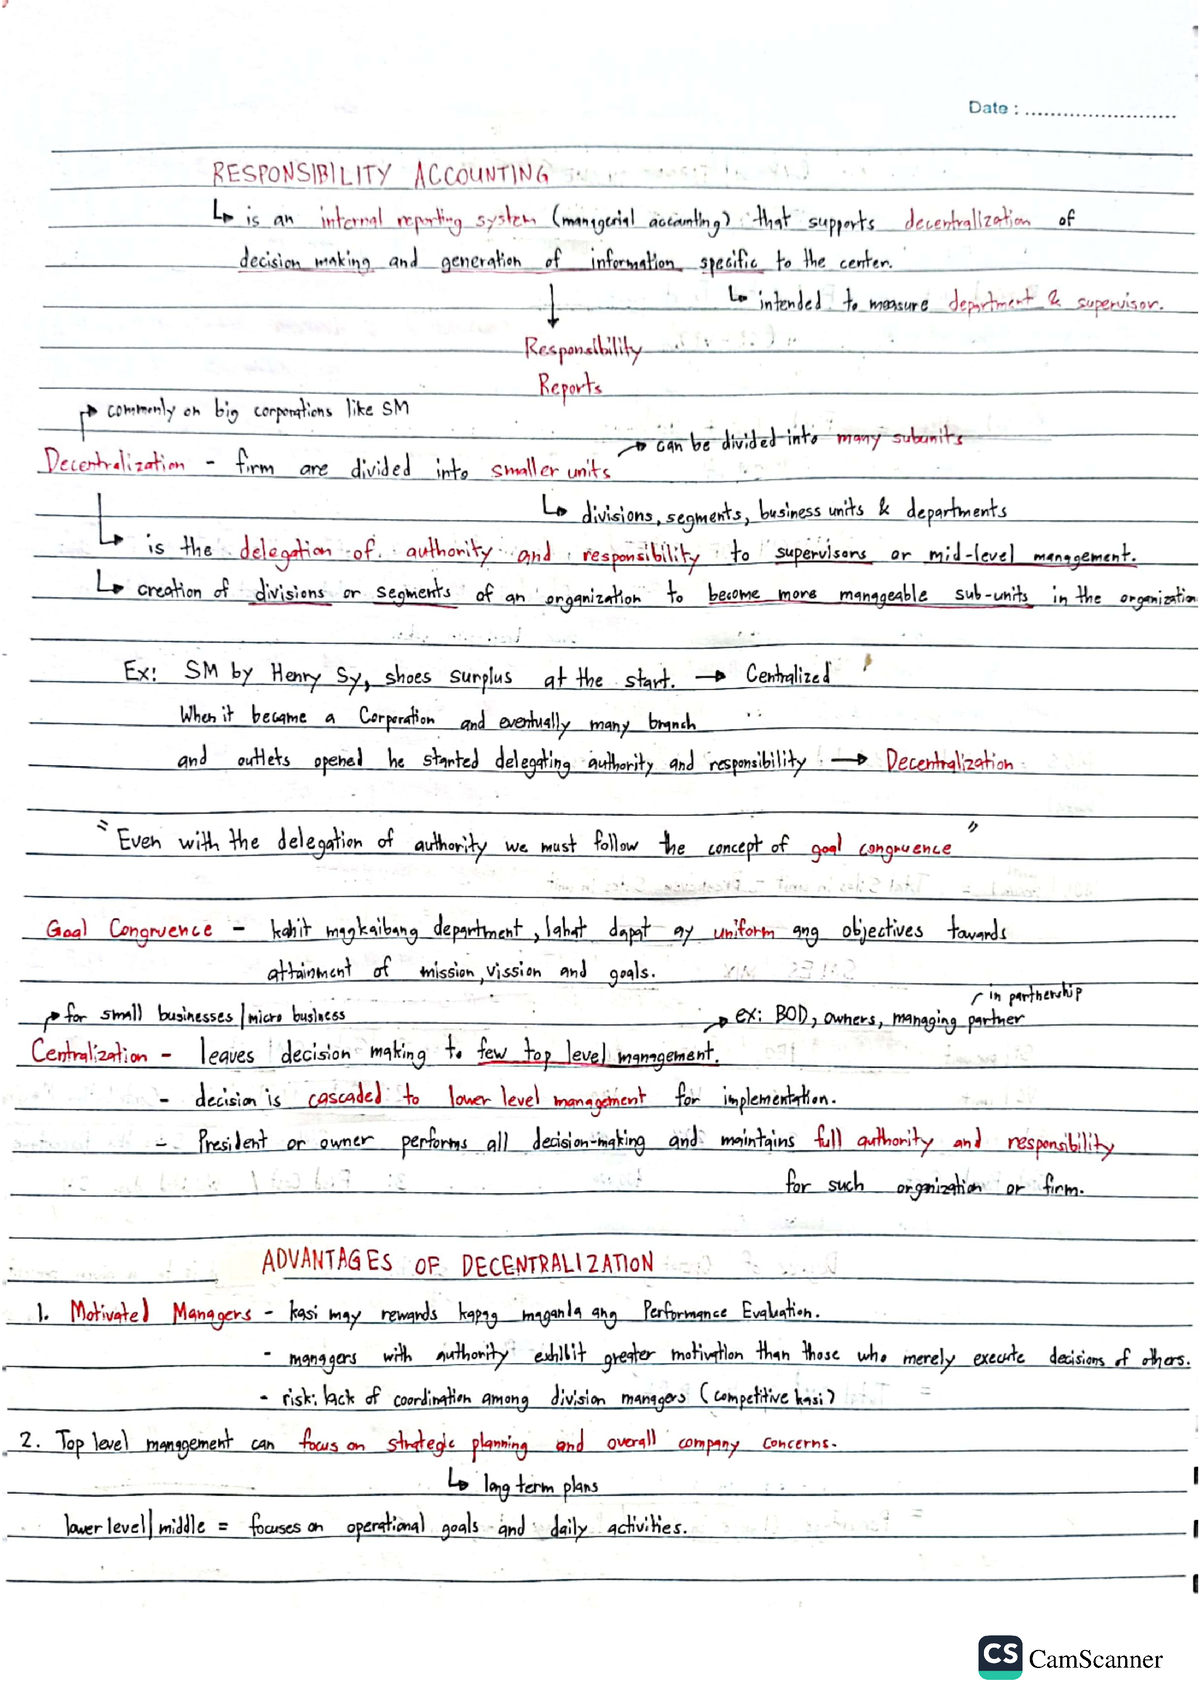 Date : ........................
RESPONSIBILITY ACCOUNTING
↳ is an internal reporting system (managerial accounting) that supports decentralization of
decision making and generation of information specific to the center.
↳ intended to measure department & supervisor.
Responsibility
Reports
commonly on big corporations like SM
can be divided into many subunits
Decentralization - firm are divided into smaller units
↳ divisions, segments, business units & departments
↳ is the delegation of authority and responsibility to supervisors or mid-level management.
↳ creation of divisions or segments of an organization to become more manageable sub-units in the organization
Ex: SM by Henry Sy, shoes surplus at the start. → Centralized
When it became a Corporation and eventually many branch
and outlets opened he started delegating authority and responsibility → Decentralization
"Even with the delegation of authority we must follow the concept of goal congruence"
Goal Congruence - kahit magkaibang department, lahat dapat ay uniform ang objectives towards
attainment of mission, vission and goals.
in partnership
for small businesses | micro business
ex: BOD, owners, managing partner
Centralization - leaves decision making to few top level management.
- decision is cascaded to lower level management for implementation.
- President or owner performs all decision-making and maintains full authority and responsibility
for such organization or firm.
ADVANTAGES OF DECENTRALIZATION
1. Motivated Managers - kasi may rewards kapag maganda ang Performance Evaluation.
- managers with authority exhibit greater motivation than those who merely execute decisions of others.
- risk: lack of coordination among division managers (competitive kasi)
2. Top level management can focus on strategic planning and overall company concerns.
↳ long term plans
lower level | middle = focuses on operational goals and daily activities.
CS CamScanner